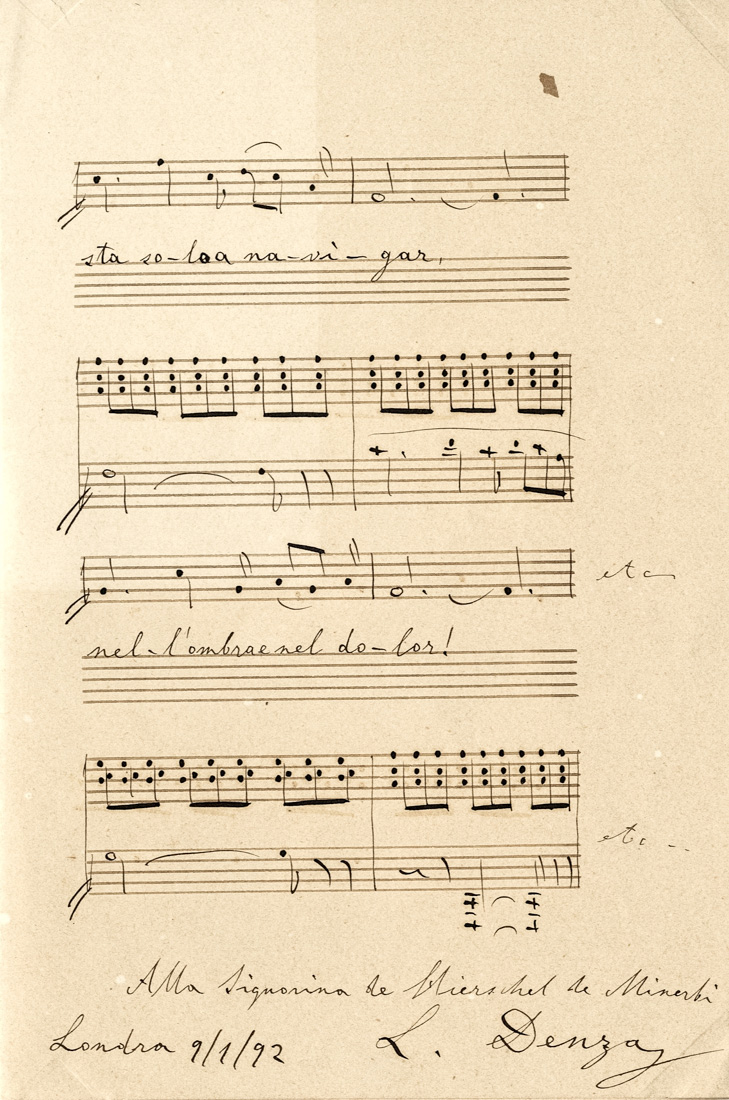 sta so-loa na-vi-gar,
etc
nel-l'ombrae nel do-lor!
etc --
Alla Signorina de Hierschel de Minerbi
Londra 9/1/92 L. Denza